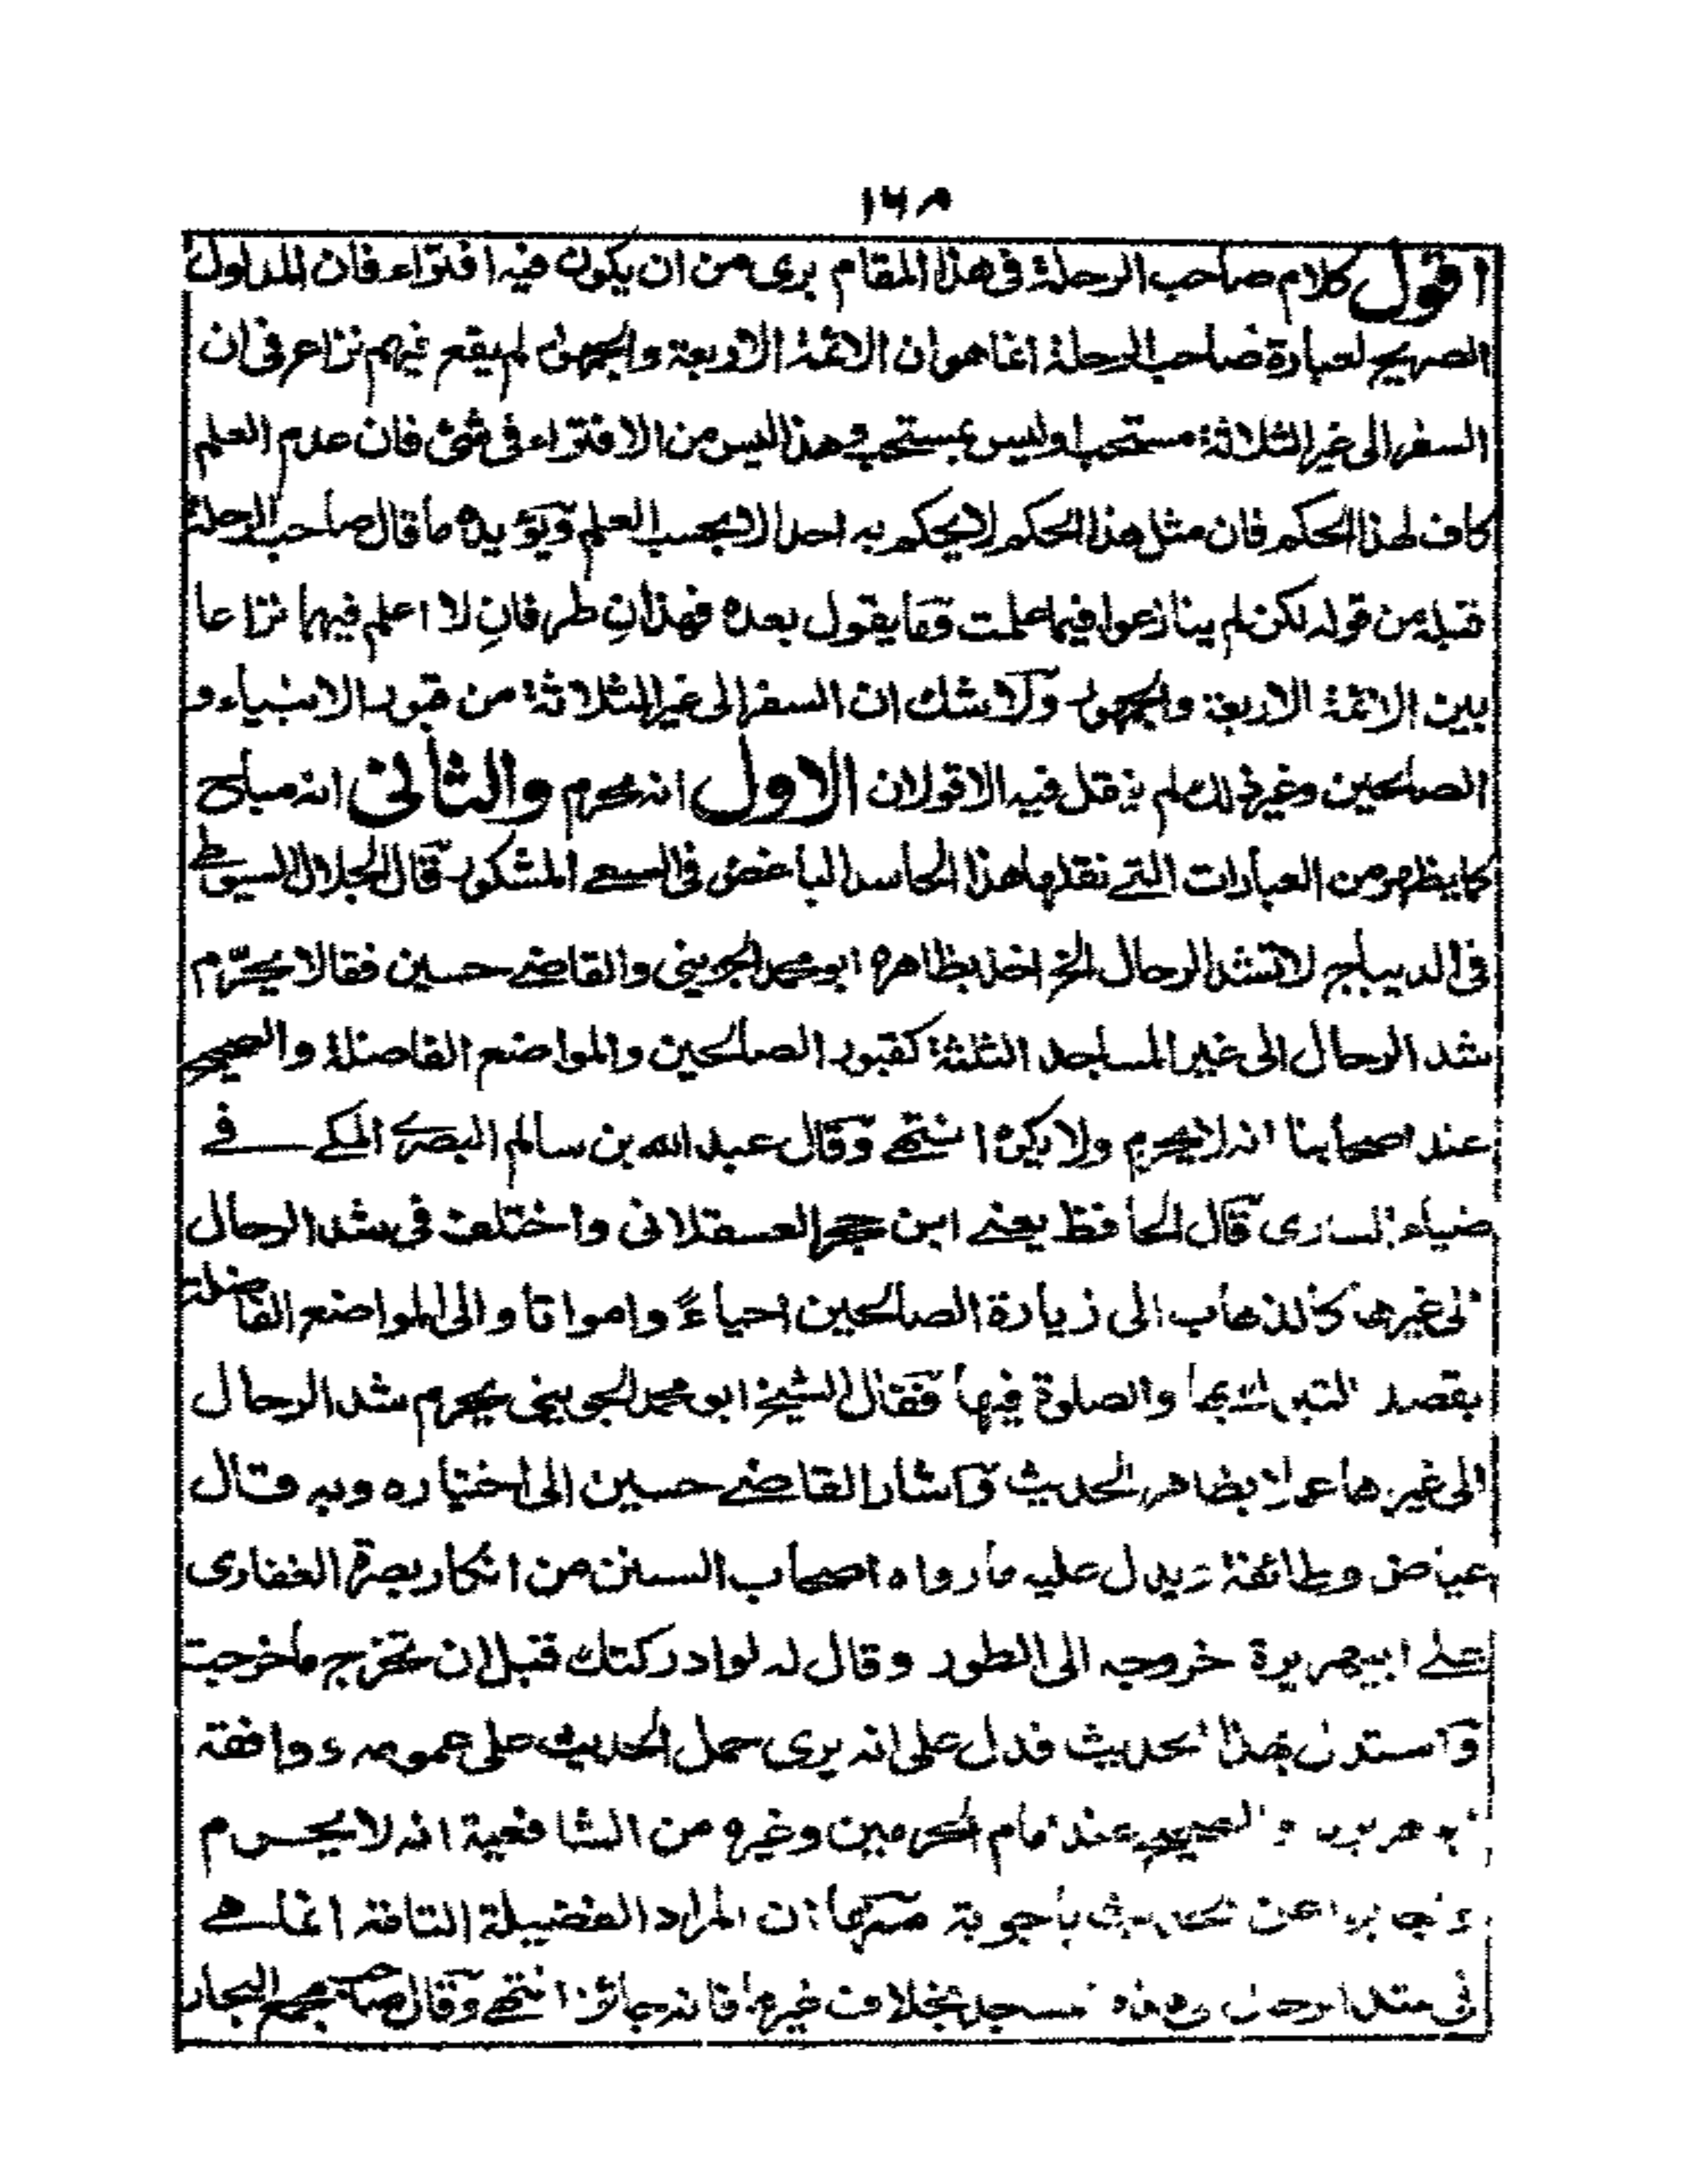 ١٦٨
اقول كلام صاحب الرحلة فى هذا المقام برى من ان يكون فيه افتراء فان المدلول
الصريح لعبارة صاحب الرحلة انما هو ان الائمة الاربعة والجمهور لم يقع فيهم نزاع فى ان
السفر الى غير الثلاثة مستحب او ليس بمستحب وهذا ليس من الافتراء فى شئ فان عدم العلم
كاف لهذا الحكم فان مثل هذا الحكم لا يحكم به احد الا بحسب العلم ويؤيده ما قال صاحب الرحلة
قبله من قوله لكن لم ينازعوا فيما علمت وما يقول بعده فهذانِ طرفانِ لا اعلم فيهما نزاعا
بين الائمة الاربعة والجمهور ولا شك ان السفر الى غير الثلاثة من قبور الانبياء و
الصالحين وغير ذلك لم ينقل فيه الا قولان الاول انه محرم والثانى انه مباح
كما يظهر من العبارات التے نقلها هذا الحاسد الباغض فى السعے المشكور قال الجلال السيوطے
فى الديباج لا تشد الرحال الخ اخذ بظاهره ابو محمد الجوينى والقاضے حسين فقالا يحرّم
شد الرحال الى غير المساجد الثلثة كقبور الصالحين والمواضع الفاضلة والصحيح
عند اصحابنا انه لا يحرم ولا يكره انتهے وقال عبد الله بن سالم البصرے المكے فے
ضياء السارى قال الحافظ يعنے ابن حجر العسقلانى واختلف فى شد الرحال
الى غيرها كالذهاب الى زيارة الصالحين احياءً وامواتا والى المواضع الفاضلة
بقصد التبرك بها والصلوة فيها فقال الشيخ ابو محمد الجوينى يحرم شد الرحال
الى غيرها عملا بظاهر الحديث واشار القاضے حسين الى اختياره وبه قال
عياض وطائفة ويدل عليه ما رواه اصحاب السنن من انكار بصرة الغفارى
علے ابيهريرة خروجه الى الطور وقال له لو ادركتك قبل ان تخرج ما خرجت
واستدل بهذا الحديث فدل على انه يرى حمل الحديث على عمومه ووافقه
ابو هريرة والصحيح عند امام الحرمين وغيره من الشافعية انه لا يحرم
واجابوا عن الحديث باجوبة منها ان المراد الفضيلة التامة انما هے
فى شد الرحال الى هذه المسجد بخلاف غيرها فانه جائز انتهے وقال صاحب مجمع البحار